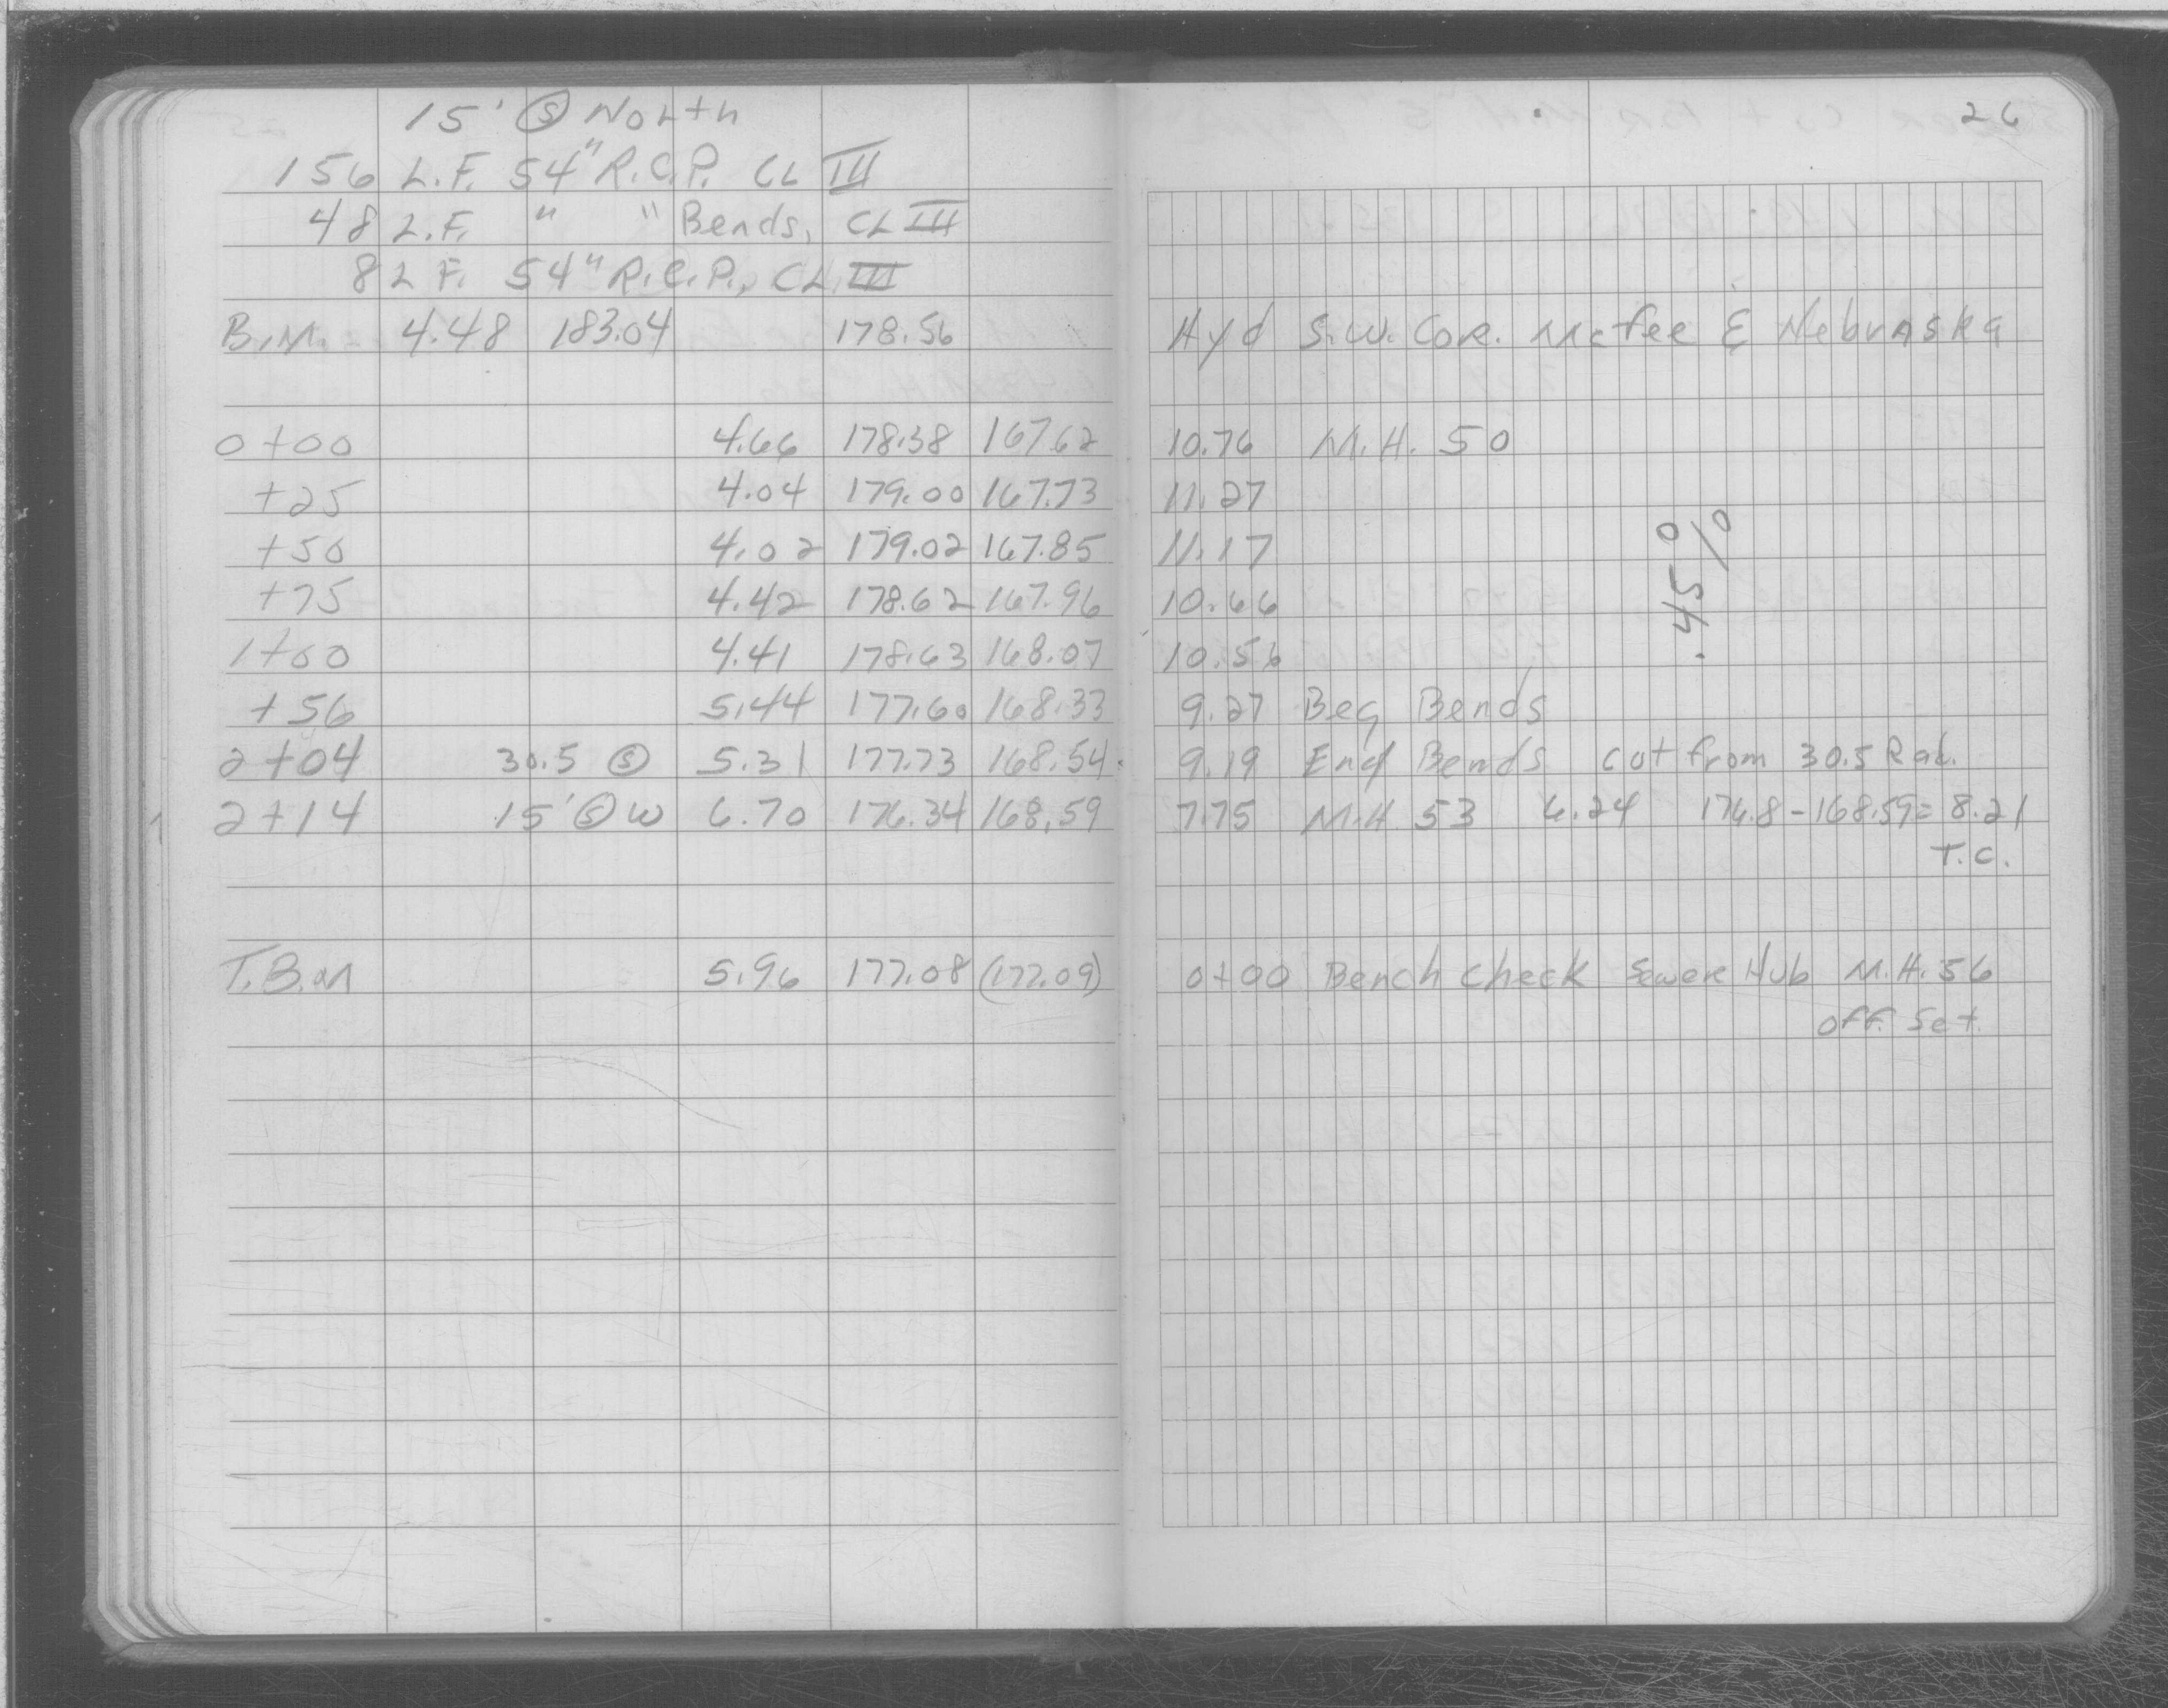 26
15' Ⓢ North
156 L.F. 54" R.C.P. CL III
48 L.F. " " Bends, CL III
8 L.F. 54" R.C.P., CL III
B.M. 4.48 183.04 178.56 Hyd S.W. Cor. McFee & Nebraska
0+00 4.66 178.38 167.62 10.76 M.H. 50
+25 4.04 179.00 167.73 11.27
+50 4.02 179.02 167.85 11.17
+75 4.42 178.62 167.96 10.66
.45%
1+00 4.41 178.63 168.07 10.56
+56 5.44 177.60 168.33 9.27 Beg Bends
2+04 30.5 Ⓢ 5.31 177.73 168.54 9.19 End Bends cut from 30.5 Rad.
2+14 15' Ⓢ W 6.70 176.34 168.59 7.75 M.H. 53 6.24 176.8-168.59=8.21
T.C.
T.B.M 5.96 177.08 (177.09) 0+00 Bench Check Sewer Hub M.H. 56
off. Set.